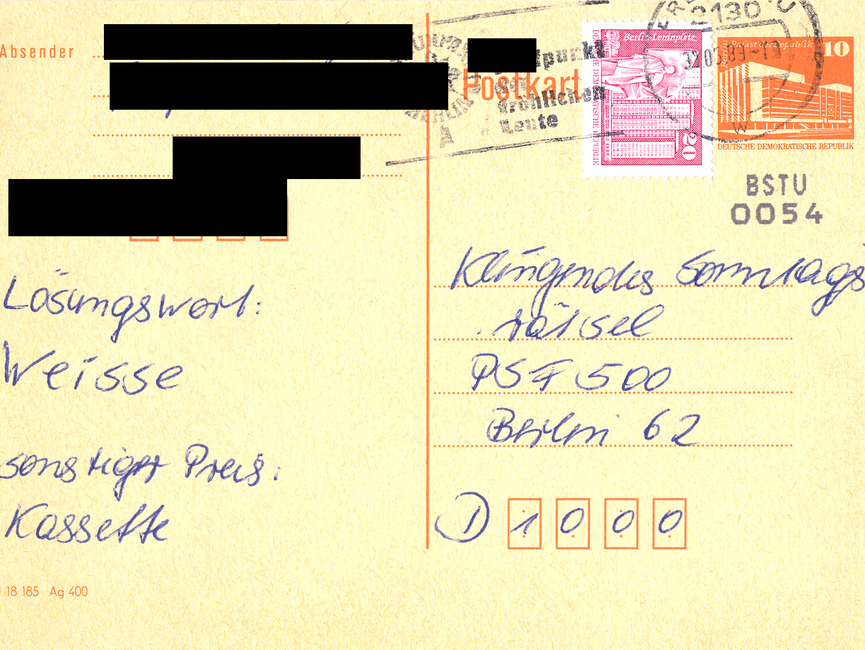 Absender
Postkart
fröhlichen
Leute
Berlin-Leninplatz
20
Palast der Republik 10
DEUTSCHE DEMOKRATISCHE REPUBLIK
BSTU
0054
Lösungswort:
Weisse
sonstiger Preis:
Kassette
Klingendes Sonntags
rätsel
PSF 500
Berlin 62
1 1000
18 185 Ag 400